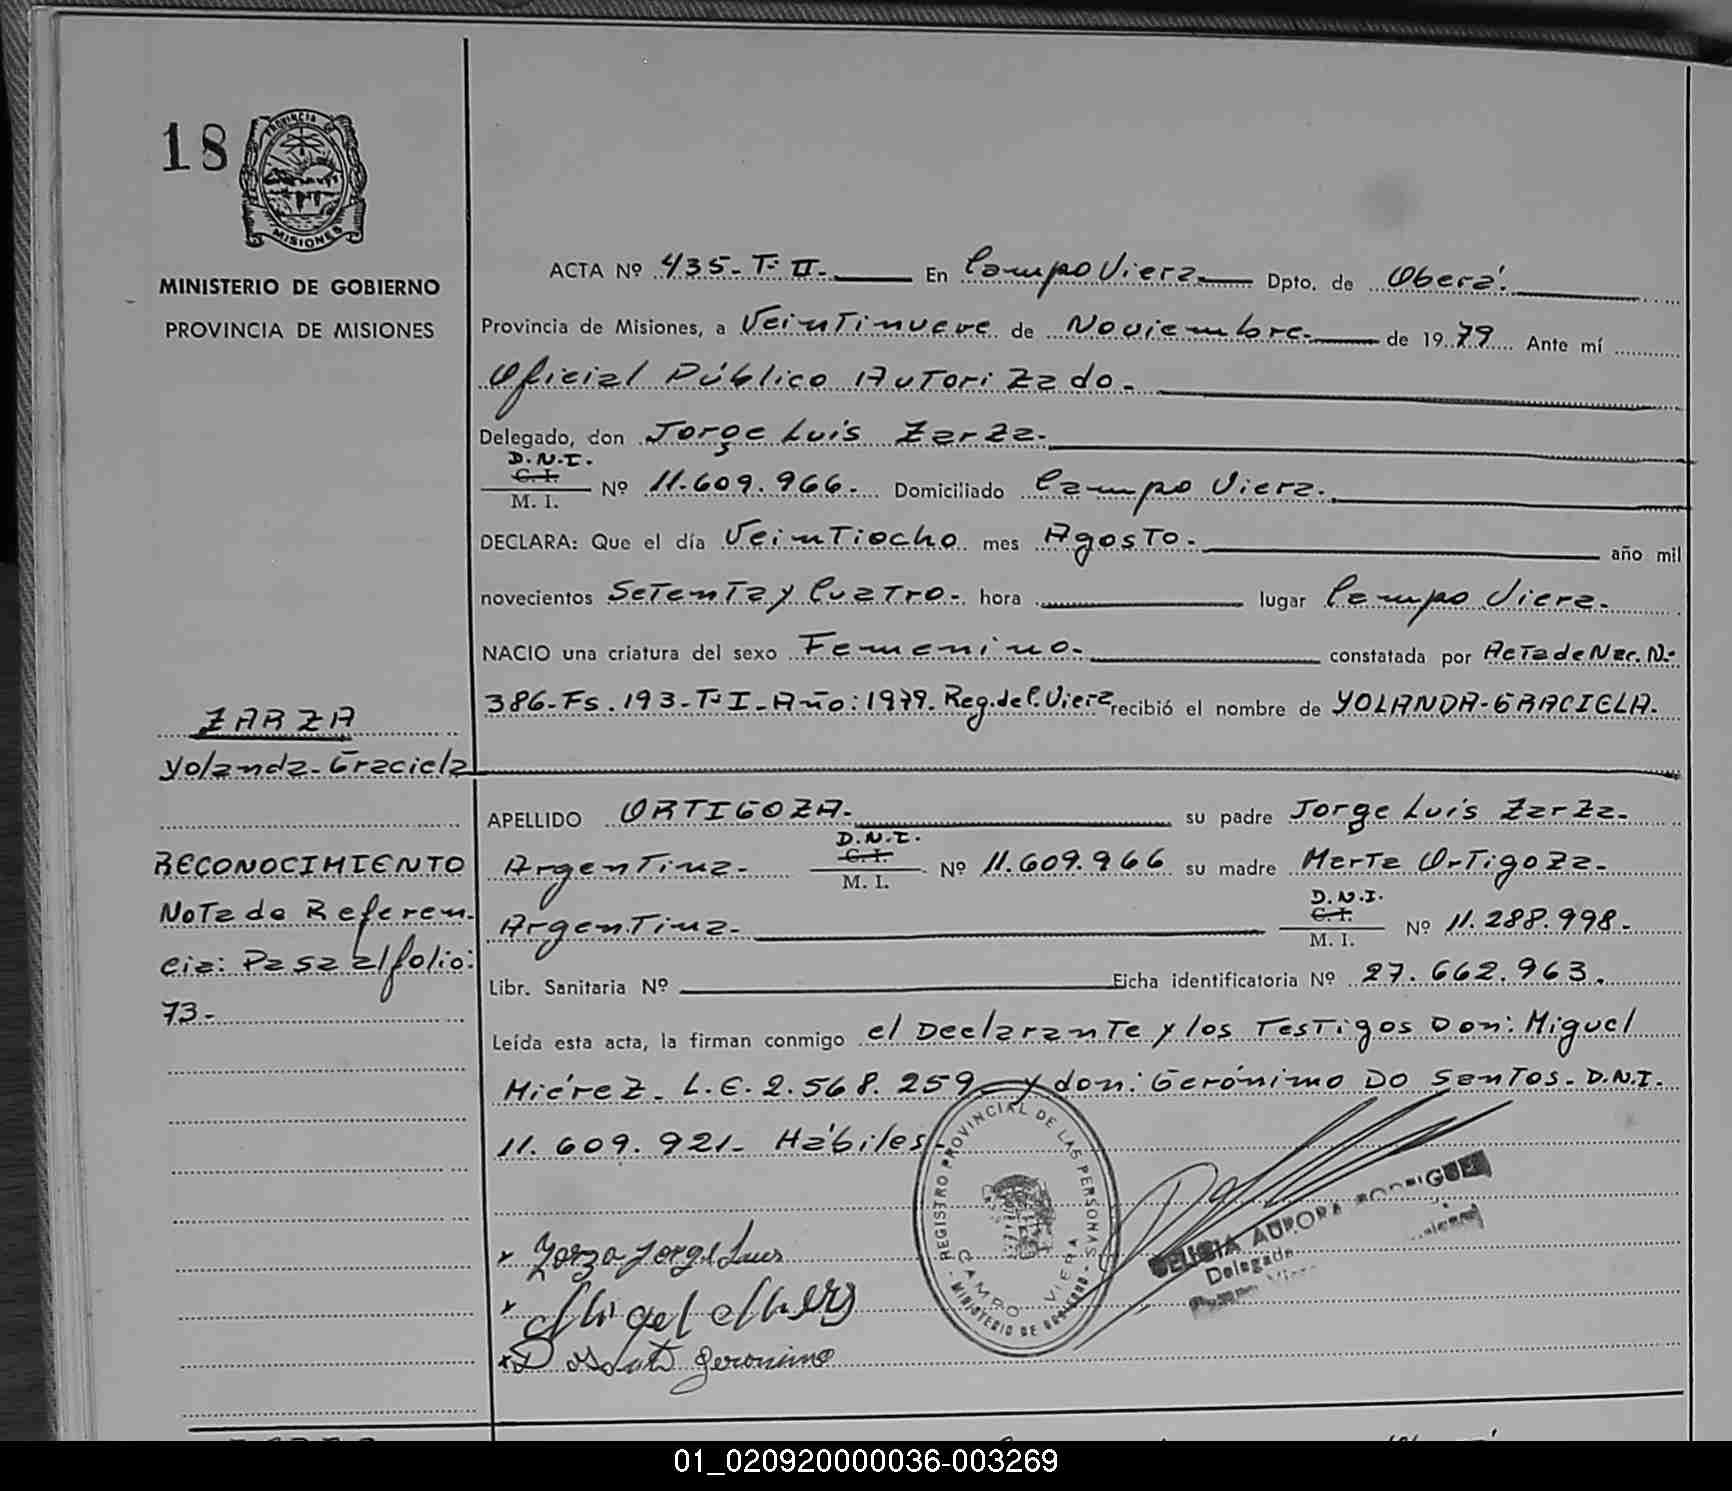 18
PROVINCIA DE
MISIONES
MINISTERIO DE GOBIERNO
PROVINCIA DE MISIONES
ZARZA
Yolanda-Graciela
RECONOCIMIENTO
Nota de Referen-
cia: Pasa al folio:
73-
ACTA Nº 435- Tº II- En Campo Viera Dpto. de Oberá.
Provincia de Misiones, a Veintinueve de Noviembre. de 1979 Ante mí
Oficial Público Autorizado-
Delegado, don Jorge Luis Zarza-
D.N.I.
C. I.
M. I. Nº 11.609.966- Domiciliado Campo Viera.
DECLARA: Que el día Veintiocho mes Agosto- año mil
novecientos Setenta y Cuatro- hora lugar Campo Viera.
NACIO una criatura del sexo Femenino- constatada por Acta de Nac. Nº
386-Fs. 193-Tº I-Año: 1979. Reg. del C. Viera recibió el nombre de YOLANDA-GRACIELA.
APELLIDO ORTIGOZA- su padre Jorge Luis Zarza-
Argentina- D.N.I. C. I. M. I. Nº 11.609.966 su madre Marta Ortigoza-
Argentina- D.N.I. C. I. M. I. Nº 11.288.998-
Libr. Sanitaria Nº Ficha identificatoria Nº 27.662.963.
Leída esta acta, la firman conmigo el Declarante y los Testigos Don: Miguel
Miérez- L.E. 2.568.259- y don: Gerónimo Do Santos- D.N.I.
11.609.921- Hábiles-
REGISTRO PROVINCIAL DE LAS PERSONAS
CAMPO VIERA
- MINISTERIO DE GOBIERNO -
DELICIA AURORA RODRIGUEZ
Delegada
x Zarza Jorge Luis
x Miguel
x Geronimo
01_020920000036-003269